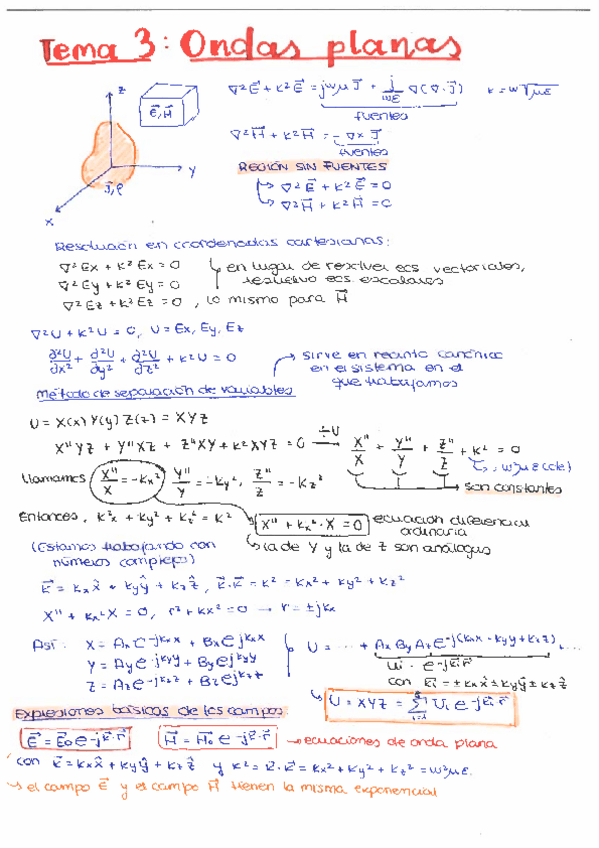 Tema 3: Ondas planas
∇²E⃗ + k²E⃗ = jωμ J⃗ + j/ωε ∇(∇·J⃗)   k = ω√με
fuentes
∇²H⃗ + k²H⃗ = -∇x J⃗
fuentes
REGIÓN SIN FUENTES
↳ ∇²E⃗ + k²E⃗ = 0
↳ ∇²H⃗ + k²H⃗ = 0
z
E⃗, H⃗
y
J⃗, ρ
x
Resolución en coordenadas cartesianas:
∇²Ex + k²Ex = 0
∇²Ey + k²Ey = 0
∇²Ez + k²Ez = 0, lo mismo para H⃗
en lugar de resolver ecs vectoriales,
resuelvo ecs escalares
∇²U + k²U = 0, U = Ex, Ey, Ez
∂²U/∂x² + ∂²U/∂y² + ∂²U/∂z² + k²U = 0
→ sirve en recinto canónico
en el sistema en el
que trabajamos
Método de separación de variables
U = X(x) Y(y) Z(z) = XYZ
X''YZ + Y''XZ + Z''XY + k²XYZ = 0 —÷U→ X''/X + Y''/Y + Z''/Z + k² = 0
ω²με (cte)
Llamamos X''/X = -kx², Y''/Y = -ky², Z''/Z = -kz²
→ son constantes
Entonces, kx² + ky² + kz² = k²
X'' + kx²·X = 0
ecuación diferencial
ordinaria
↳ la de Y y la de Z son análogas
(Estamos trabajando con
números complejos)
k⃗ = kx x̂ + ky ŷ + kz ẑ, k⃗·k⃗ = k² = kx² + ky² + kz²
X'' + kx²X = 0, r² + kx² = 0 → r = ±jkx
Así: X = Ax e^-jkxx + Bx e^jkxx
Y = Ay e^-jkyy + By e^jkyy
Z = Az e^-jkzz + Bz e^jkzz
U = ... + Ax By Az e^-j(kxx - kyy + kzz) + ...
Ui · e^-jk⃗i·r⃗
con k⃗i = ±kx x̂ ± ky ŷ ± kz ẑ
↳ U = XYZ = Σ Ui e^-jk⃗i·r⃗
Expresiones básicas de los campos:
E⃗ = E⃗o e^-jk⃗·r⃗
H⃗ = H⃗o e^-jk⃗·r⃗ → ecuaciones de onda plana
con k⃗ = kx x̂ + ky ŷ + kz ẑ y k² = k⃗·k⃗ = kx² + ky² + kz² = ω²με.
↳ el campo E⃗ y el campo H⃗ tienen la misma exponencial